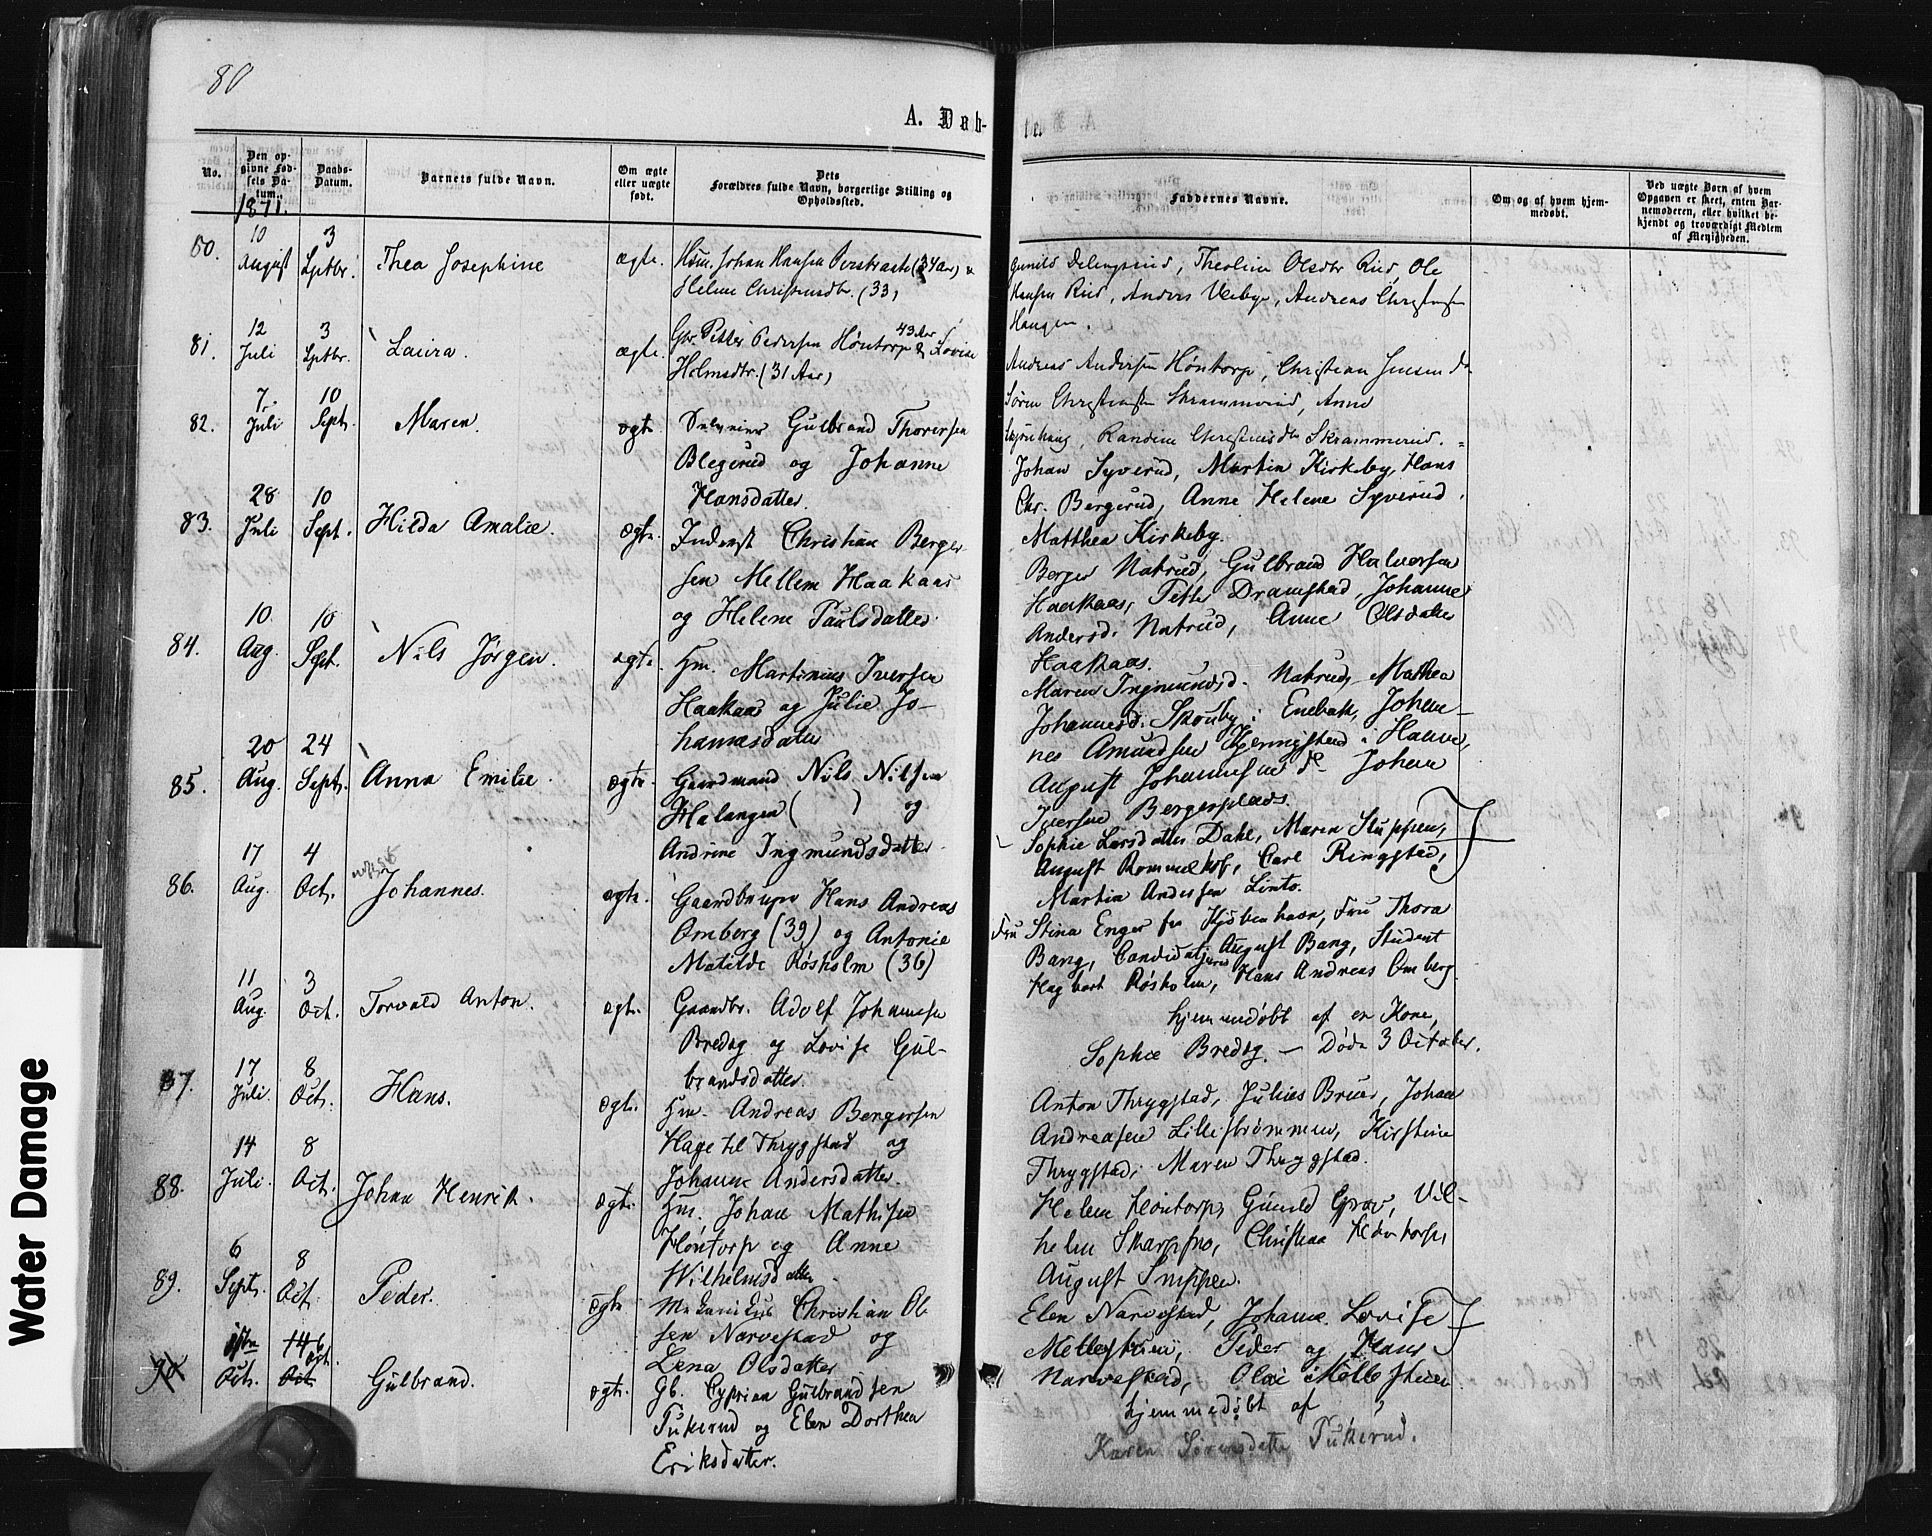 80
A. Døb-
te.
No.
Den op-
givne Fød-
sels Da-
tum.
Daabs-
Datum.
Barnets fulde Navn.
Om ægte
eller uægte
født.
Dets
Forældres fulde Navn, borgerlige Stilling og
Opholdssted.
Faddernes Navne.
Om og af hvem hjem-
medøbt.
Ved uægte Børn af hvem
Opgaven er skeet, enten Bar-
nemoderen, eller hvilket be-
kjendt og troværdigt Medlem
af Menigheden.
1871.
80. 10 August 3 Sptbr. Thea Josephine ægte.
Hsm. Johan Hansen (34 Aar) &
Helene (33)
Gunild Theoline Olsdtr Rud, Ole
Hansen Rud, Anders Andreas
Haugen.
81. 12 Juli 3 Sptbr. Laura. ægte.
Gbr. Petter Pedersen Höntorp 43 Aar & Lovise
Holmsdtr. (31 Aar)
Andreas Andersen Höntorp, Christian Jensen do
Sören Skrammerud, Anne
Randine Skrammerud.
82. 7 Juli 10 Sept. Maren. ægte.
Gulbrand Thorersen
Blegerud og Johanne
Hansdatter.
Johan Syverud, Martin Kirkeby, Hans
Chr. Bergerud, Anne Helene Syverud.
Matthea Kirkeby.
83. 28 Juli 10 Sept. Hilda Amalie. ægte.
Inderst Christian Berger-
sen Mellem Haakaas
og Helene Paulsdatter.
Berger Natrud, Gulbrand Halvorsen
Haakaas, Petter Dramstad, Johanne
Andersd. Natrud, Anne Olsdatter
Haakaas.
84. 10 Aug. 10 Sept. Nils Jørgen. ægte.
Hm. Martinius Iversen
Haakaas og Julie Jo-
hannesdatter
Maren Ingmundsd. Natrud, Mathea
Johannesd. Skouby i Enebak, Johan-
nes Amundsen i
August Johannesen do Johan
Iversen Bergerplads.
85. 20 Aug. 24 Sept. Anna Emilie. ægte.
Gaardmand Nils Nilsen
Halangen ( ) og
Andrine Ingmundsdatter.
Sophie Larsdatter Dahl, Maren Stuppen,
August Carl Ringstad,
Martin Andersen Linto.
86. 17 Aug. 4 Oct. Johannes. ægte.
Gaardbruger Hans Andreas
Omberg (39) og Antonie
Matilde Røsholm (36)
Fru Stina Enger fra Kjøbenhavn, Fru Thora
Bang, Candidat jur August Bang, Student
Hagbart Røsholm, Hans Andreas Omberg.
11 Aug. 3 Oct. Torvald Anton. ægte.
Gaardbr. Adolf Johannesen
Bredsg og Lovise Gul-
brandsdatter.
hjemmedøbt af en Kone,
Sophie Bredsg. – Døde 3 October.
87. 17 Juli. 8 Oct. Hans. ægte.
Hm. Andreas Bergersen
Hage til Thrygstad og
Johanne Andersdatter.
Anton Thrygstad, Julius Johan
Andreasen Lillestrømmen, Kirstine
Thrygstad, Maren Thrygstad.
88. 14 Juli. 8 Oct. Johan Henrik. ægte.
Hm. Johan Mathisen
Höntorp og Anne
Wilhelmsdatter
Helene Höntorp, Gunild Grav, Vil-
helm Skarpsno, Christian Höntorp,
August Snippen.
89. 6 Sept. 8 Oct. Peder. ægte
Christian Ol-
sen Narvestad og
Lena Olsdatter
Elen Narvestad, Johanne Lovise
Peder og Hans
Narvestad,
90 Oct. 14 Oct. 6 Gulbrand. ægte.
Gb. Cyprian Gulbrandsen
Tukerud og Elen Dorthea
Eriksdatter.
hjemmedøbt af
Karen Sørensdatter Tukerud.
Water Damage